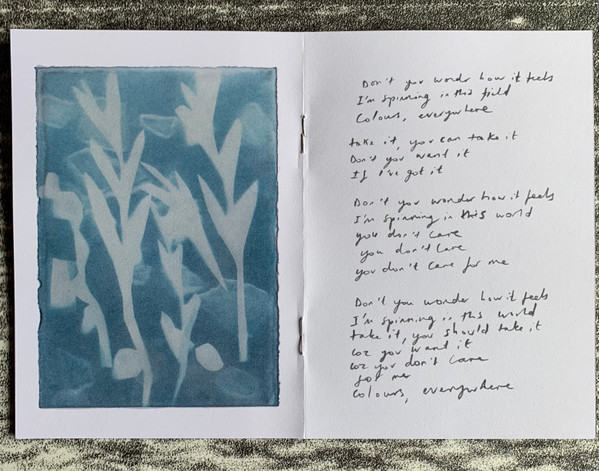 Don't you wonder how it feels
I'm spinning in this field
Colours, everywhere
take it, you can take it
Don't you want it
If I've got it
Don't you wonder how it feels
I'm spinning in this world
you don't care
you don't care
you don't care for me
Don't you wonder how it feels
I'm spinning in this world
take it, you should take it
coz you want it
coz you don't care
for me
Colours, everywhere